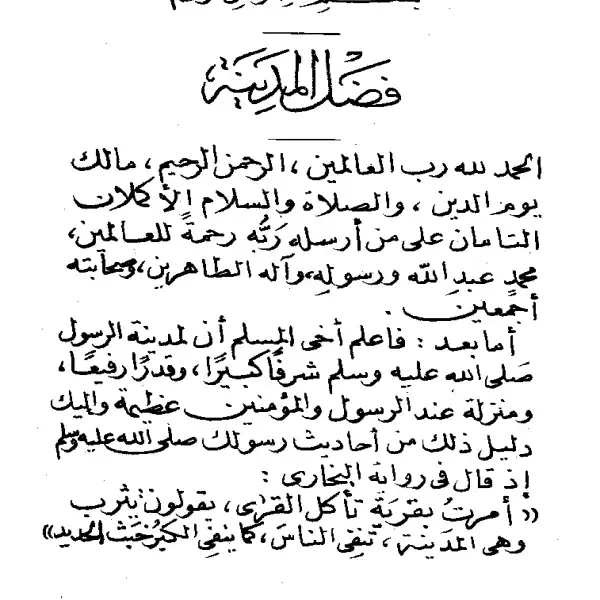 فضل المدينة
الحمد لله رب العالمين ، الرحمن الرحيم ، مالك
يوم الدين ، والصلاة والسلام الأكملان
التامان على من أرسله رَبُّه رحمةً للعالمين،
محمدٍ عبدِ الله ورسولهِ، وآله الطاهرين، وصحابته
أجمعين .
أما بعد : فاعلم أخى المسلم أن لمدينة الرسول
صلى الله عليه وسلم شرفًا كبيرًا، وقدرًا رفيعًا،
ومنزلة عند الرسول والمؤمنين عظيمة وإليك
دليل ذلك من أحاديث رسولك صلى الله عليه وسلم
إذ قال فى رواية البخارى :
« أمرتُ بقريَةٍ تأكل القرى ، يقولون يثرب
وهى المدينة ، تنفِى الناسَ ، كما ينفِى الكيرُ خبَثَ الحديد »